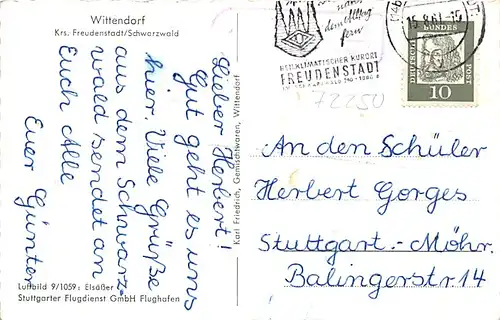 Wittendorf
Krs. Freudenstadt/Schwarzwald
Lieber Herbert!
Gut geht es uns
hier. Viele Grüße
aus dem Schwarz-
wald sendet an
Euch Alle
Euer Günter
Luftbild 9/1059: Elsäßer
Stuttgarter Flugdienst GmbH Flughafen
Karl Friedrich, Gemischtwaren, Wittendorf
dem Alltag
fern
HEILKLIMATISCHER KURORT
FREUDENSTADT
72250
DEUTSCHE
BUNDES
POST
10
An den Schüler
Herbert Gorges
Stuttgart.-Möhr.
Balingerstr 14